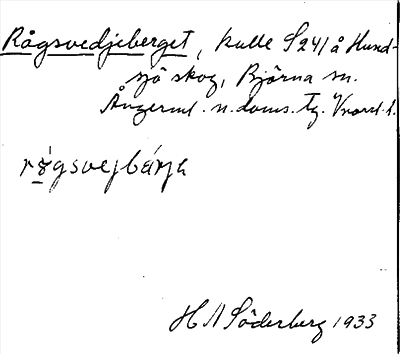 Rågsvedjeberget, kulle S 241 å Hund-
sjö skog, Björna sn.
Ångerml. n. doms. tg. Vnorrl. l.
rǻgsvejbárja
H A Söderberg 1933